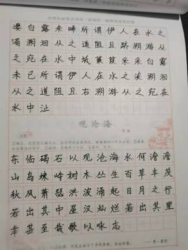 萋白露未晞所谓伊人在水之
湄溯洄从之道阻且跻溯游从
之宛在水中坻蒹葭采采白露
未已所谓伊人在水之涘溯洄
从之道阻且右溯游从之宛在
水中沚
观沧海
东临碣石以观沧海水何澹澹
山岛竦峙树木丛生百草丰茂
秋风萧瑟洪波涌起日月之行
若出其中星汉灿烂若出其里
幸甚至哉歌以咏志